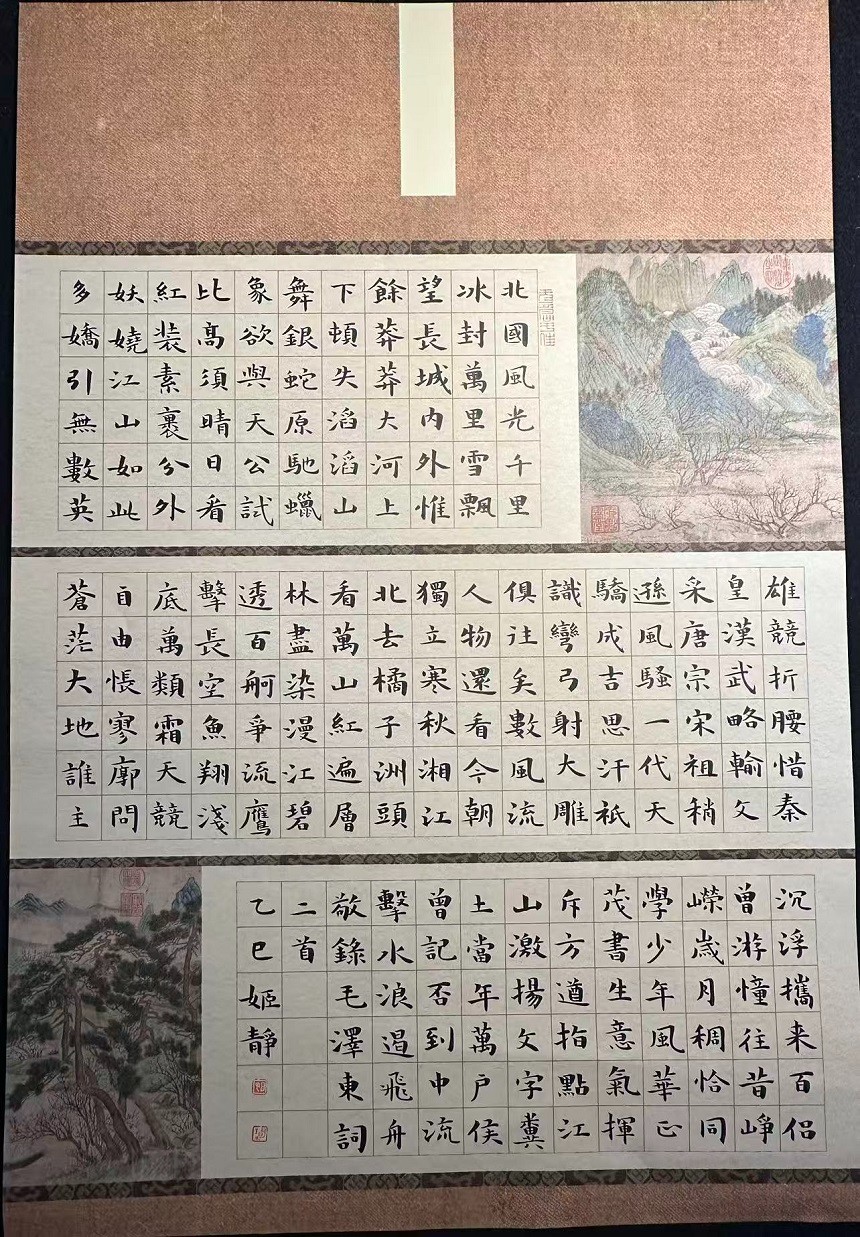 北國風光千里
冰封萬里雪飄
望長城内外惟
餘莽莽大河上
下頓失滔滔山
舞銀蛇原馳蠟
象欲與天公試
比髙須晴日看
紅裝素裹分外
妖嬈江山如此
多嬌引無數英
雄競折腰惜秦
皇漢武略輸文
采唐宗宋祖稍
遜風騷一代天
驕成吉思汗祇
識彎弓射大雕
俱往矣數風流
人物還看今朝
獨立寒秋湘江
北去橘子洲頭
看萬山紅遍層
林盡染漫江碧
透百舸爭流鷹
擊長空魚翔淺
底萬類霜天競
自由悵寥廓問
蒼茫大地誰主
沉浮攜来百侶
曾游憧往昔崢
嶸歲月稠恰同
學少年風華正
茂書生意氣揮
斥方遒指點江
山激揚文字糞
土當年萬戶侯
曾記否到中流
擊水浪遏飛舟
敬錄毛澤東詞
二首
乙巳姬靜